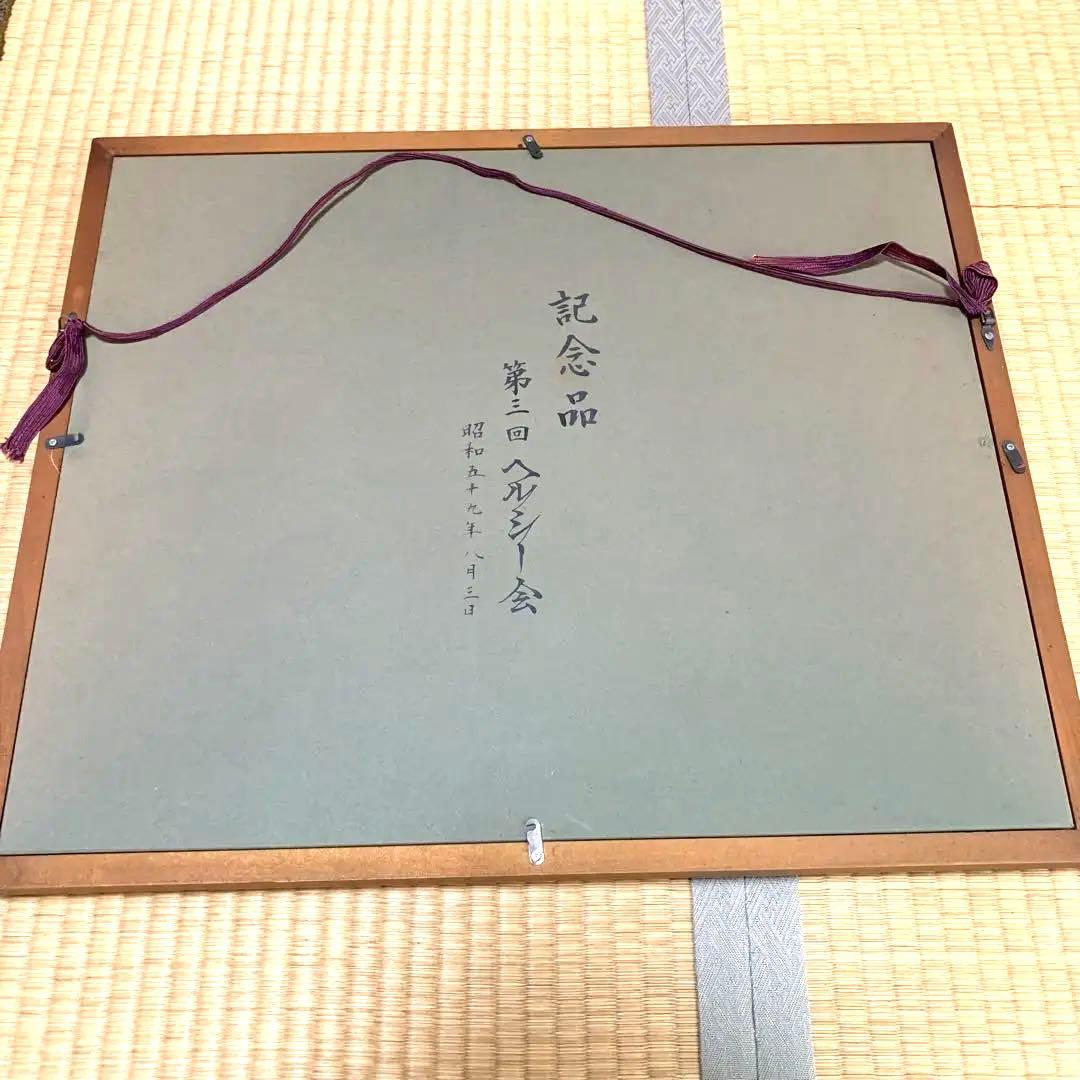 記念品
第三回 ヘルシー会
昭和五十九年八月三日